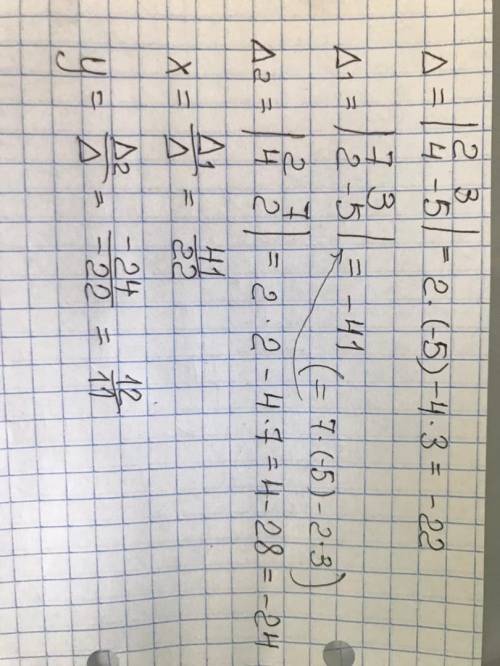 Δ = |2 3; 4 -5| = 2·(-5) - 4·3 = -22
Δ1 = |7 3; 2 -5| = -41 (= 7·(-5) - 2·3)
Δ2 = |2 7; 4 2| = 2·2 - 4·7 = 4 - 28 = -24
x = Δ1/Δ = 41/22
y = Δ2/Δ = -24/-22 = 12/11